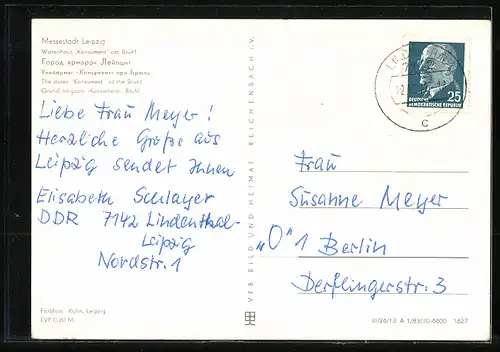 Messestadt Leipzig
Warenhaus „Konsument“ am Brühl
Город ярмарок Лейпциг
Универмаг «Консумент» при Брюль
The stores "Konsument" at the Brühl
Grand magasin «Konsument», Brühl
Liebe Frau Meyer!
Herzliche Grüße aus
Leipzig sendet Ihnen
Elisabeth Schlayer
DDR 7142 Lindenthal-
Leipzig
Nordstr. 1
Farbfoto: Kühn, Leipzig
EVP 0,20 M
VEB BILD UND HEIMAT REICHENBACH i. V.
DEUTSCHE
DEMOKRATISCHE REPUBLIK
25
c
Frau
Susanne Meyer
„O“ 1 Berlin
Derflingerstr. 3
III/26/13 A 1/83/70-6600 1627